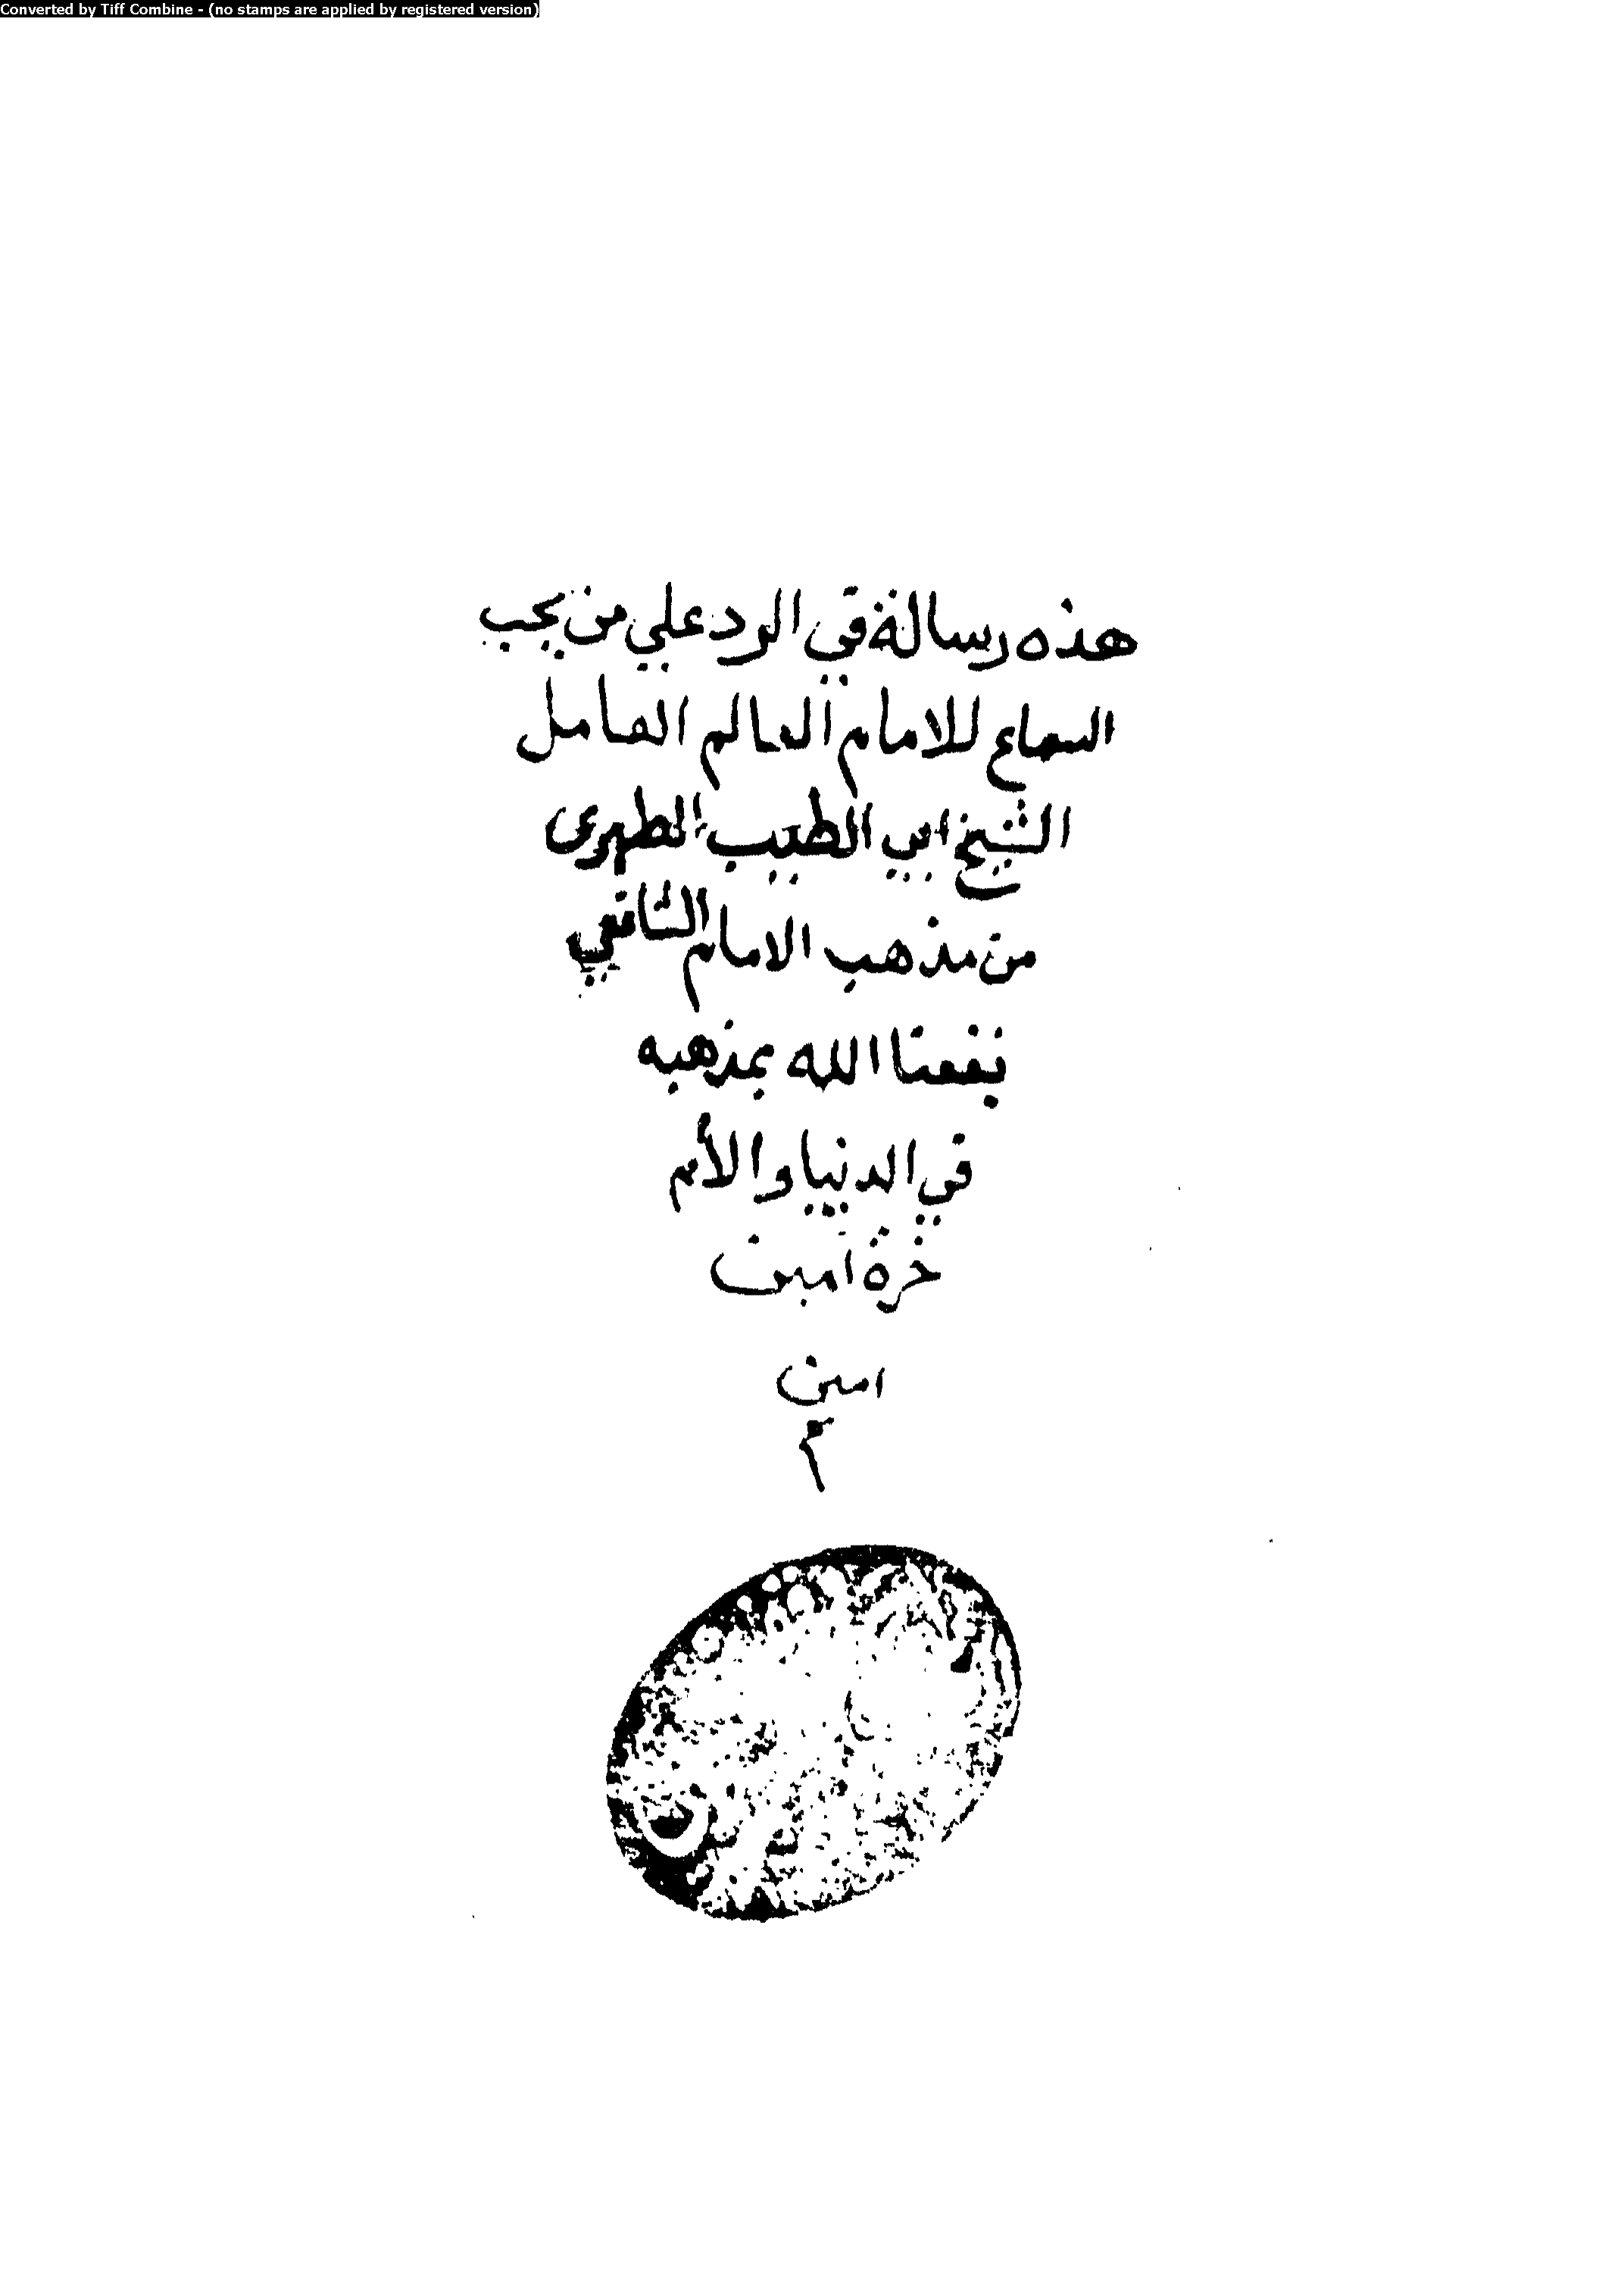 Converted by Tiff Combine - (no stamps are applied by registered version)
هذه رسالة في الرد علي من يحب
السماع للامام العالم العامل
الشيخ ابي الطيب الطبري
من مذهب الامام الشافعي
نفعنا الله بمذهبه
في الدنيا والأم
خرة امين
امين
م